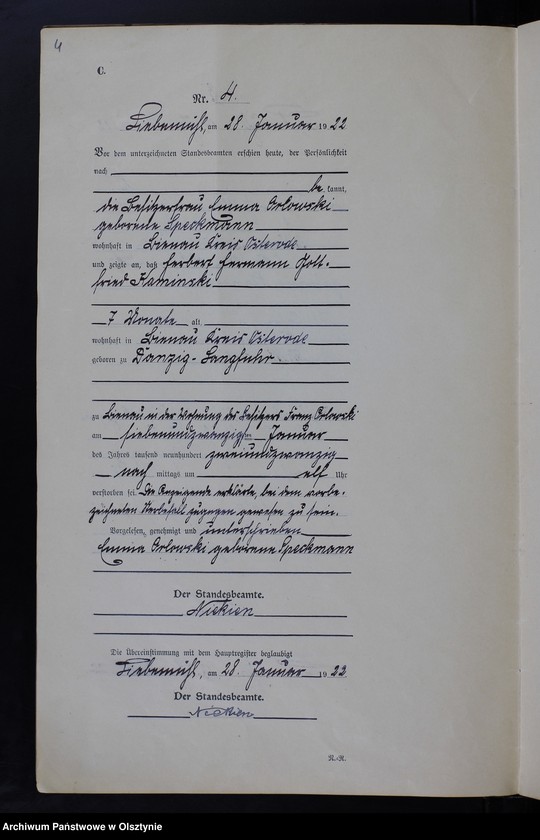 4
C.
Nr. 4.
Liebemühl, am 28. Januar 1922
Vor dem unterzeichneten Standesbeamten erschien heute, der Persönlichkeit
nach
be kannt,
die Besitzerfrau Emma Orlowski
geborene Speckmann
wohnhaft in Bienau Kreis Osterode
und zeigte an, daß Herbert Hermann Gott-
fried Kaminski
7 Monate alt
wohnhaft in Bienau Kreis Osterode
geboren zu Danzig-Langfuhr
zu Bienau in der Wohnung des Besitzers Franz Orlowski
am siebenundzwanzigsten Januar
des Jahres tausend neunhundert zweiundzwanzig
nach mittags um elf Uhr
verstorben sei. Die Anzeigende erklärte, bei dem vorbe-
zeichneten Sterbefall zugegen gewesen zu sein.
Vorgelesen, genehmigt und unterschrieben
Emma Orlowski geborene Speckmann
Der Standesbeamte.
Nickien
Die Übereinstimmung mit dem Hauptregister beglaubigt
Liebemühl, am 28. Januar 1922
Der Standesbeamte.
Nickien
R.-R.
Archiwum Państwowe w Olsztynie